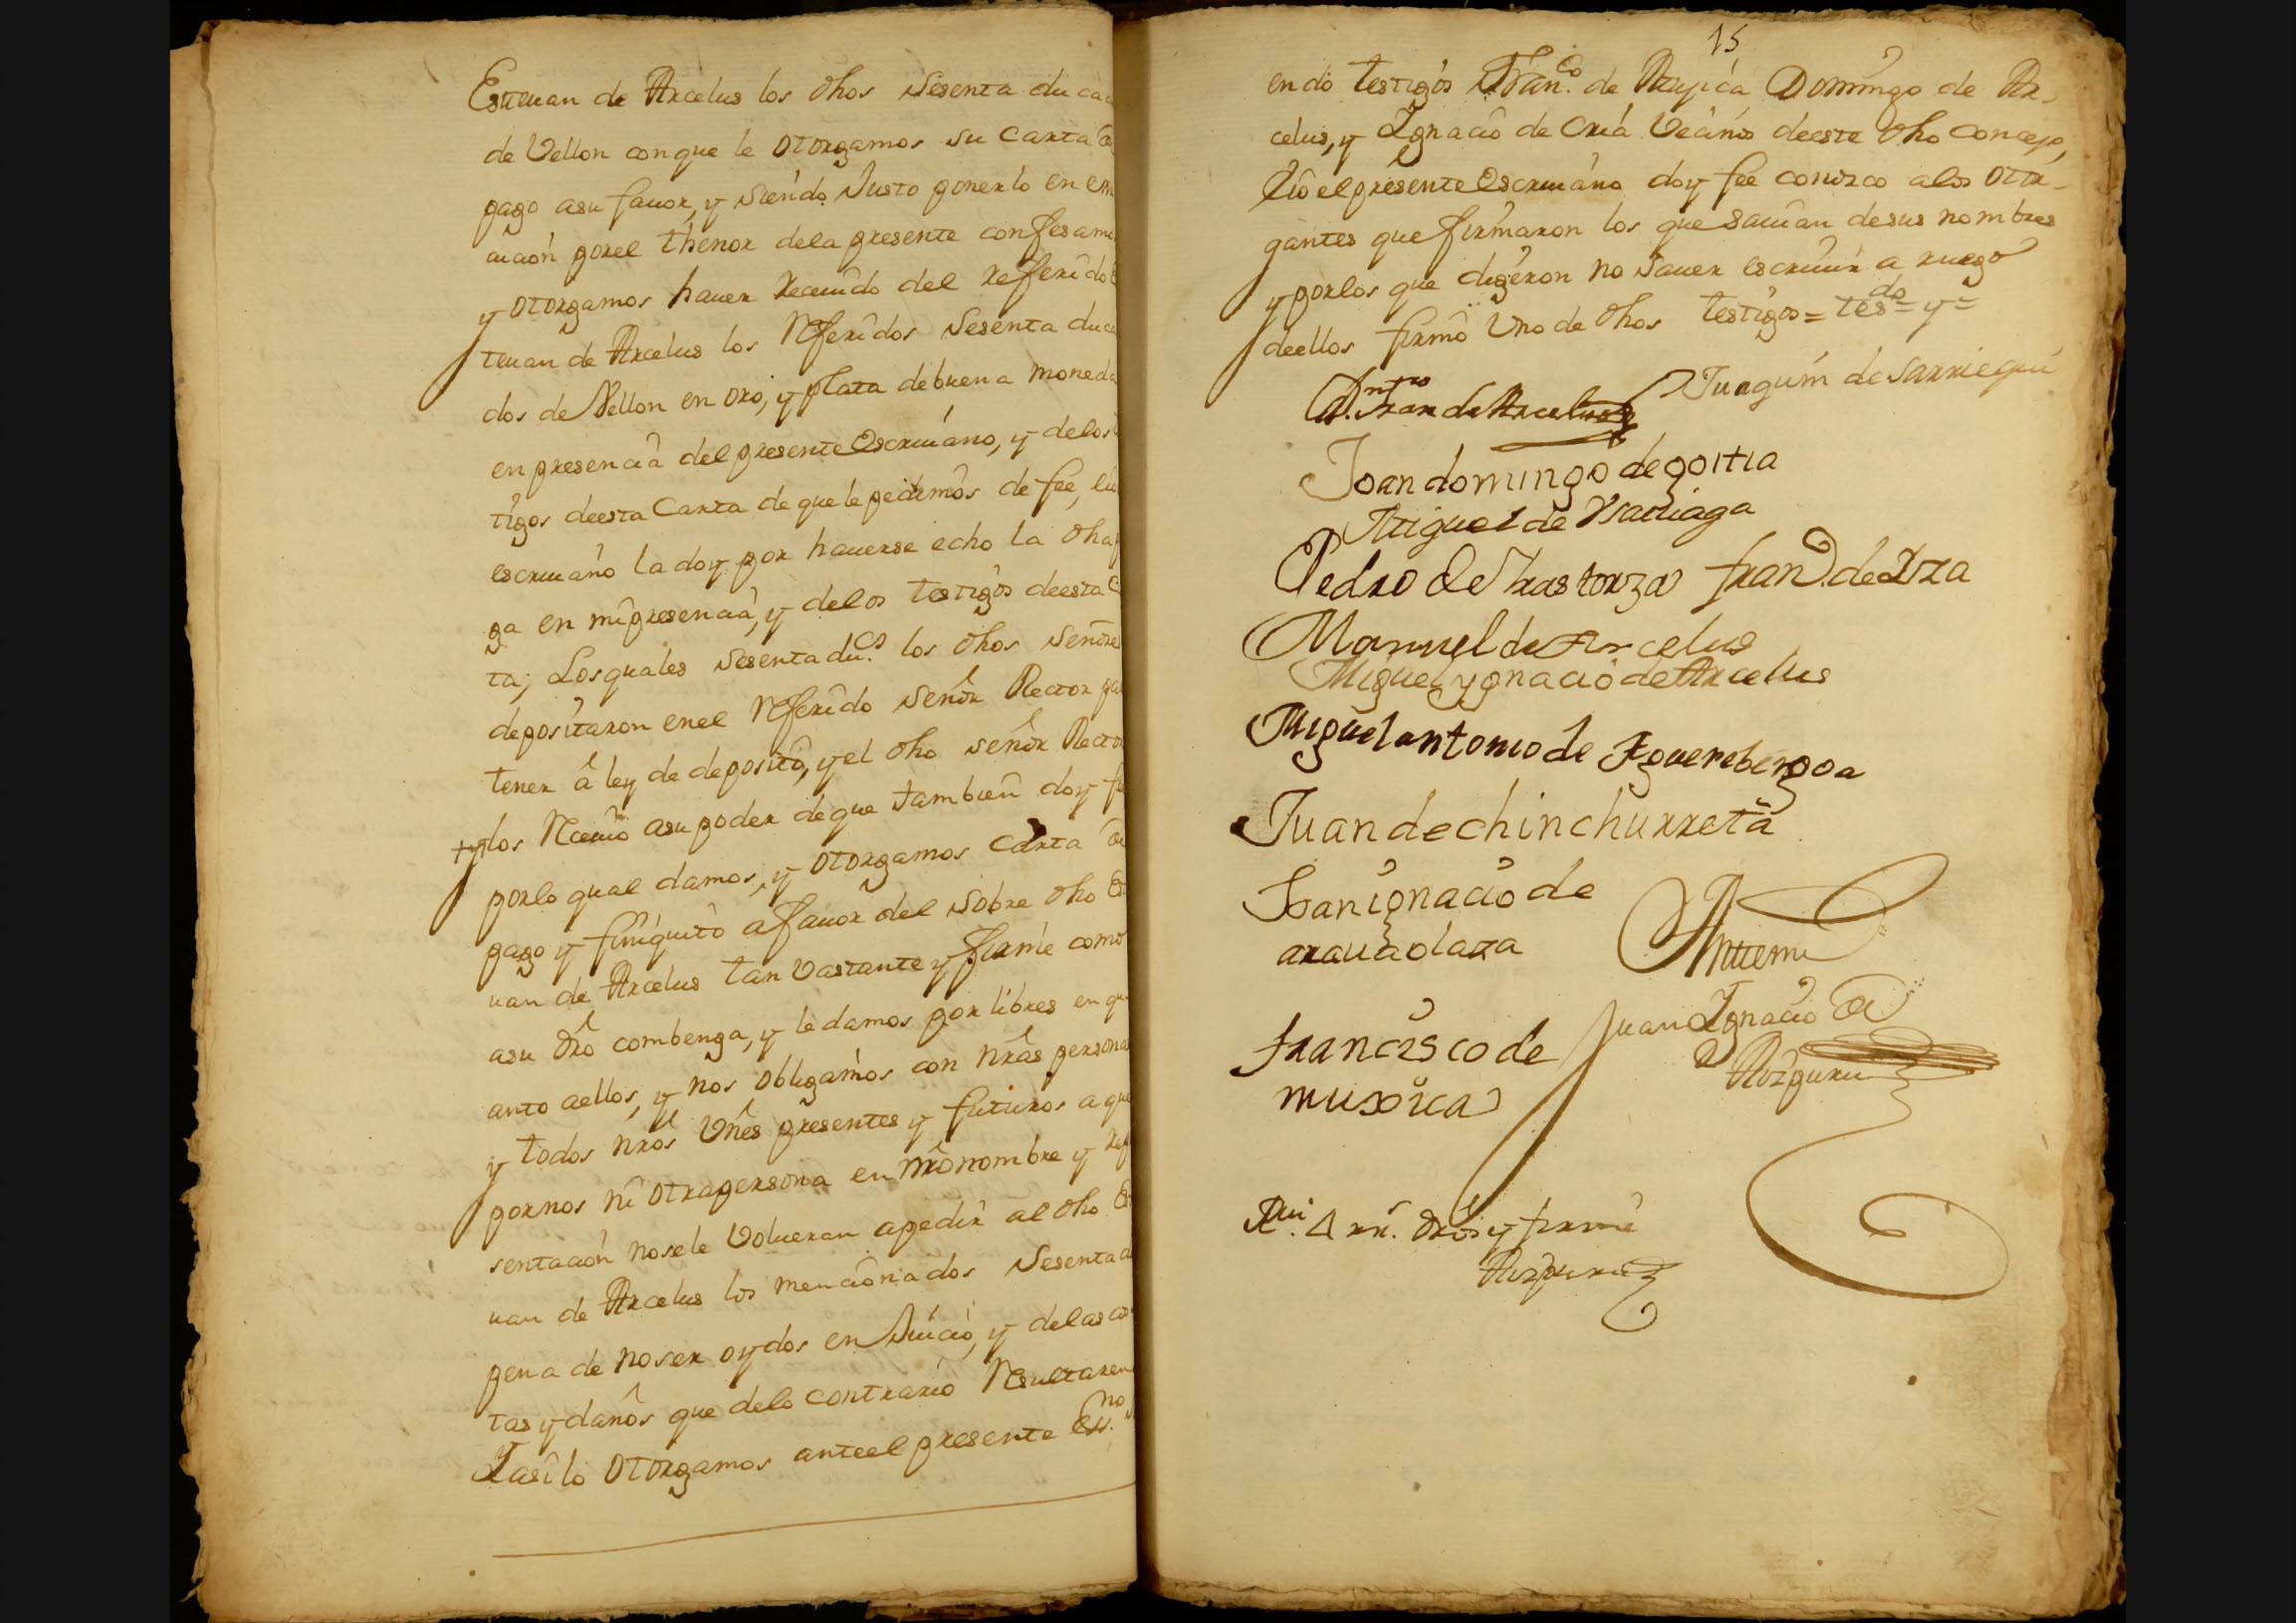 Esteuan de Arcelus los dhos sesenta duca
de Vellon con que le otorgamos su carta de
pago asu fauor, y siendo Justo ponerlo en
ucion por el thenor dela presente confesamo
y otorgamos hauer Receuido del Referido
teuan de Arcelus los Referidos sesenta duca
dos de Vellon en oro, y plata de buena moneda
en presencia del presente Escriuano, y delos
tigos deesta Carta de que le pedimos de fee,
escriuano la doy por hauerse echo la dha
ga en mi presencia, y delos testigos deesta
ta; Los quales sesenta du.cs los dhos señores
depositaron enel Referido señor Rector
tener â ley de deposito, y el dho señor Rector
+ y los Reciuio asu poder de que tambien doy
porlo qual damos, y otorgamos carta de
pago y finiquito afauor del sobre dho
uan de Arcelus tan vastante y firme como
asu dro combenga, y ledamos por libres en qu
anto aellos, y nos obligamos con nras persona
y todos nros Vnes presentes y futuros a que
pornos ni otra persona en nro nombre y
sentacion nosele Volueran apedir al dho
uan de Arcelus los mencionados sesenta
pena de noser oydos en Juicio, y delas cos
tas y daños que delo contrario Resultaren
Y asi lo otorgamos anteel presente Ess.no
15
endo testigos Fran.co de Domingo de Ar-
celus, y Ygnacio de Vecinos deeste dho concejo,
Yo el presente Escriuano doy fee conozco alos otor-
gantes que firmaron los que sauian desus nombres
y porlos que digeron no sauer escriuir a ruego
deellos firmô Vno de dhos testigos = tes.do = y =
de Arcelus Juaquin de Sarriegui
Joan domingo de goitia
Miguel de
Pedro de fran.co de
Manuel de Arcelus
Miguel ygnacio de Arcelus
Miguel antonio de
Juan de chinchurreta
Joan ignacio de
arauaolaza
Antemi
francisco de
muxica
Juan Ygnacio de
Aizpuru
4 rr. dros y firme
Aizpuru